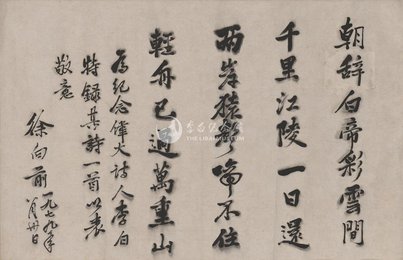 朝辞白帝彩雲間
千里江陵一日還
两岸猿声啼不住
軽舟已過萬重山
为紀念偉大詩人李白
特録其詩一首以表
敬意
徐向前
一九七九年
李白纪念馆
THE LIBAI MUSEUM